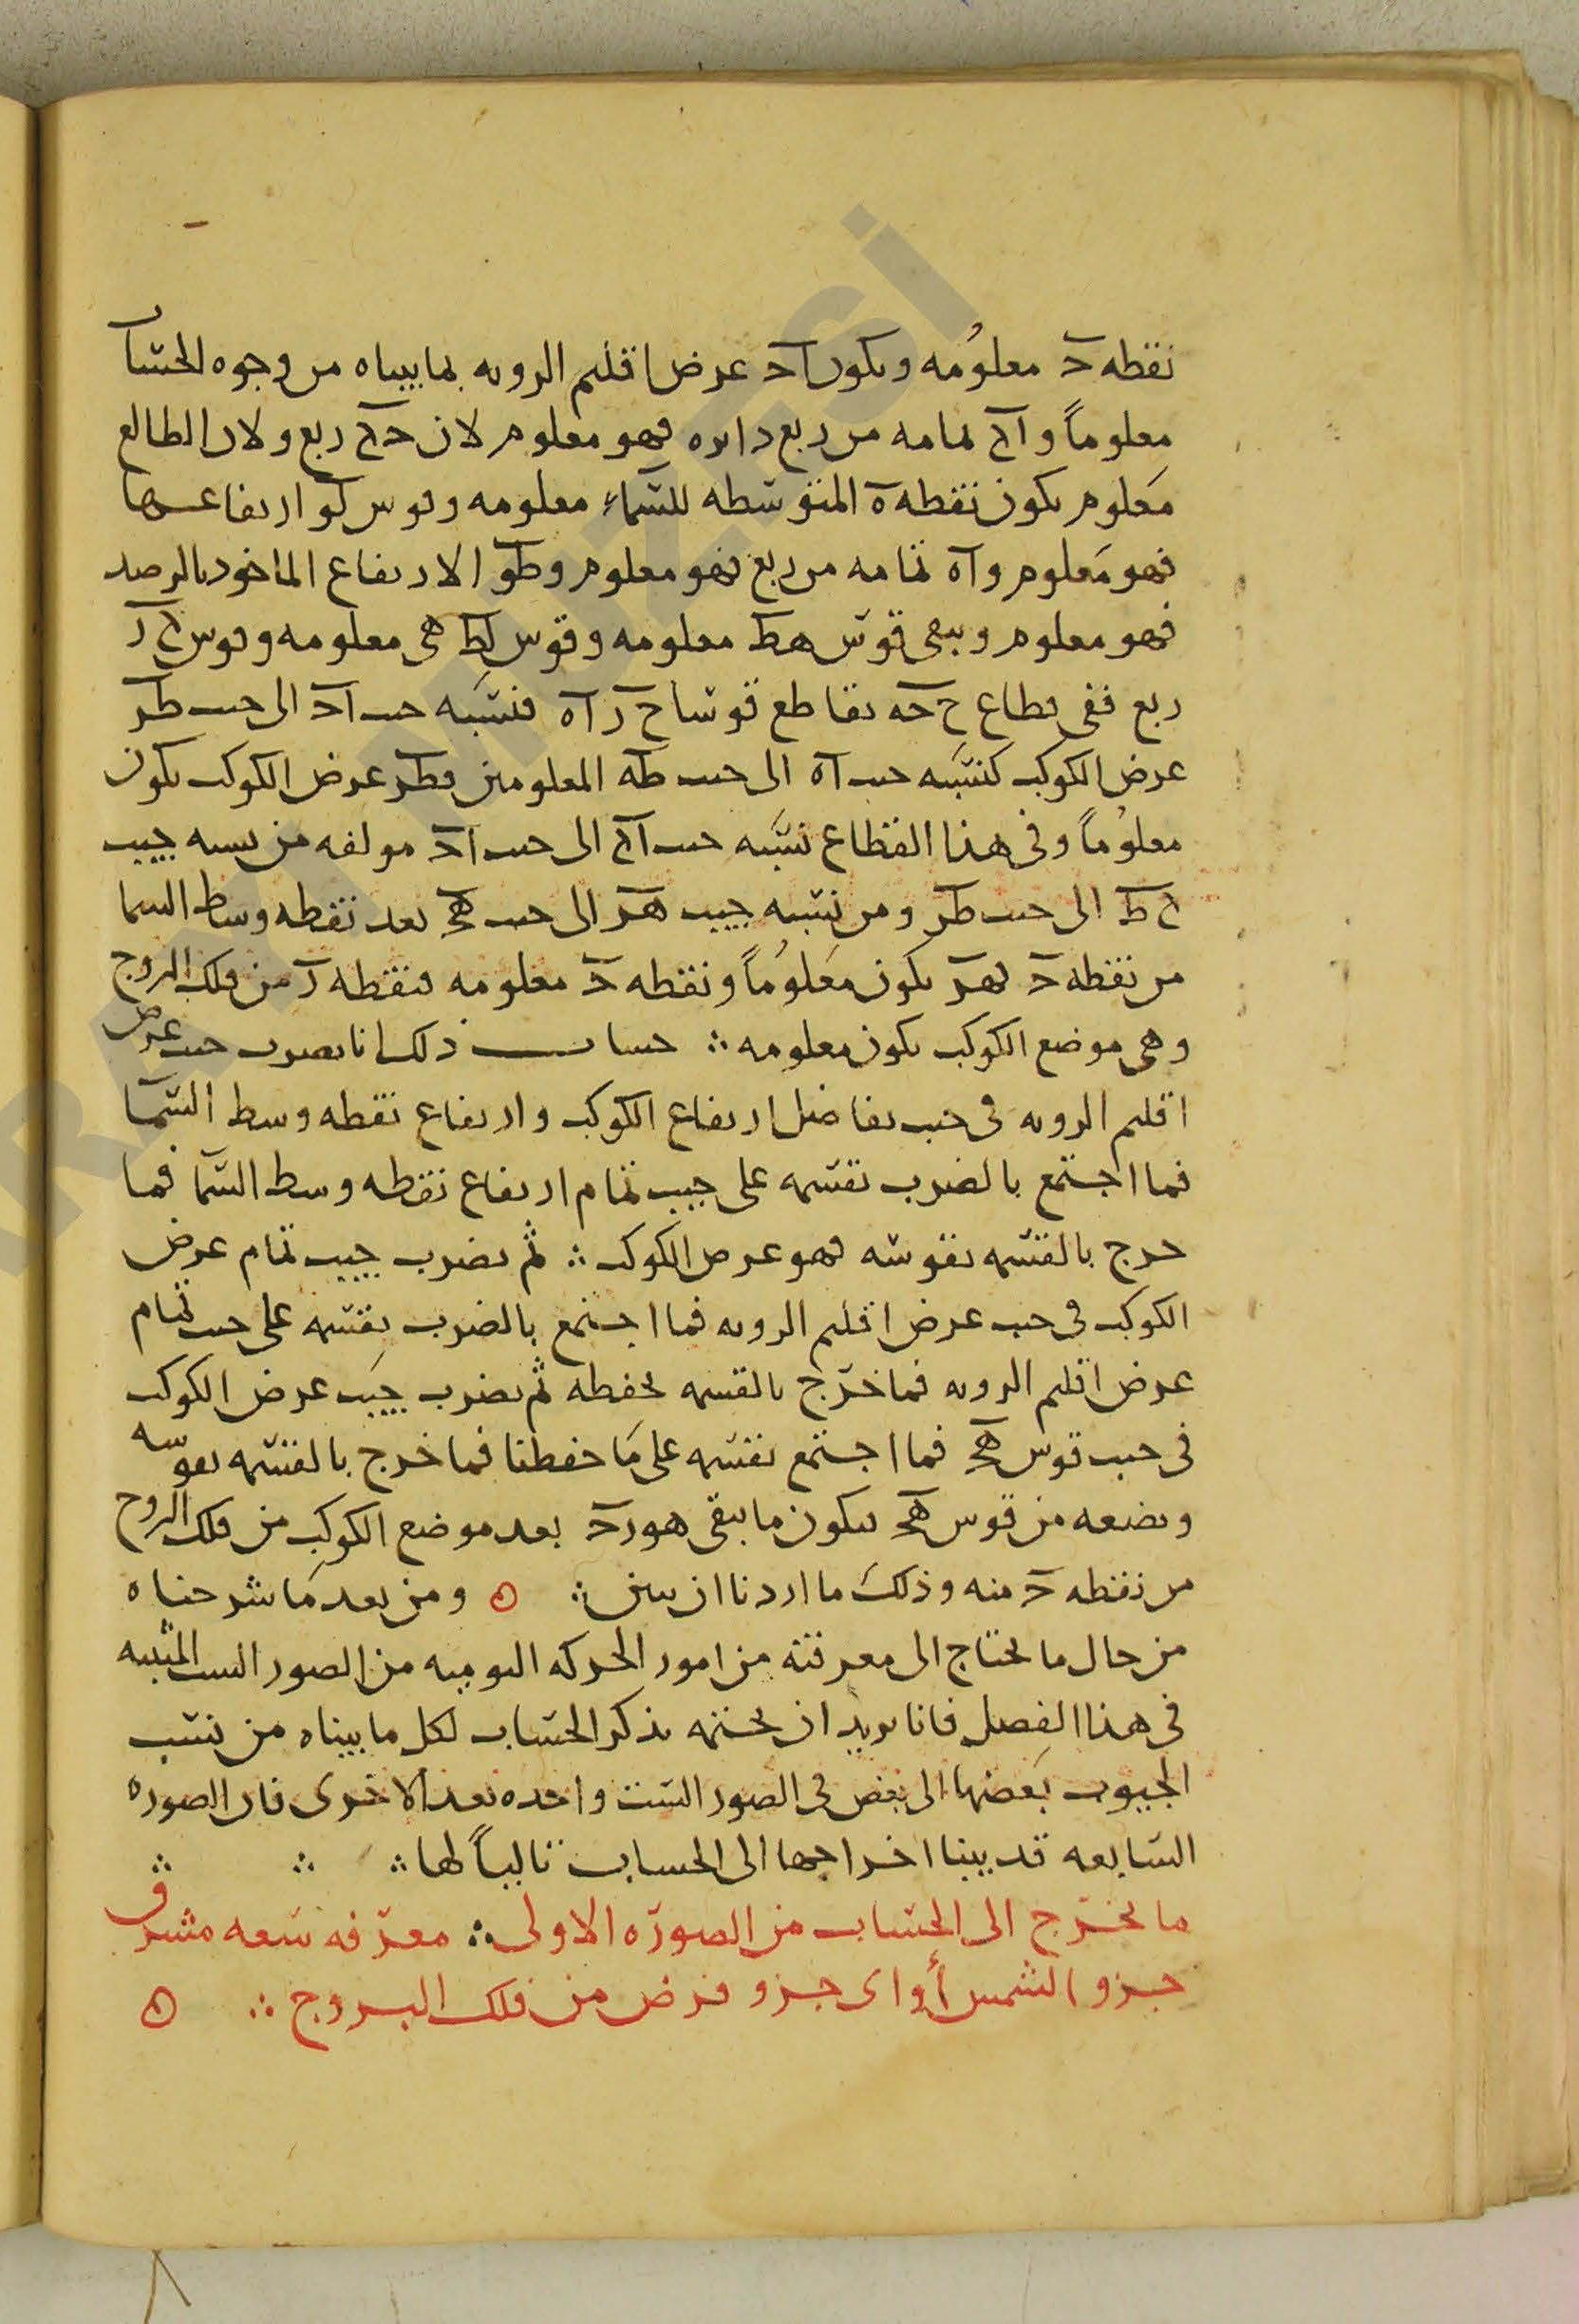 نقطه د معلومه ويكون اد عرض اقليم الرويه بما بيناه من وجوه الحساب
معلوماً واح تمامه من ربع دايره فهو معلوم لان دح ربع ولان الطالع
معلوم يكون نقطه ه المتوسطه للسماء معلومه وقوس كو ارتفاعها
فهو معلوم واه تمامه من ربع فهو معلوم وطو الارتفاع الماخوذ بالرصد
فهو معلوم ويبقى قوس هط معلومه وقوس لط هى معلومه وقوس ح ر
ربع ففى قطاع ح حه تقاطع قوسا ح ر اه فنسبه جيب اد الى جيب طر
عرض الكوكب كنسبه جيب اه الى جيب طه المعلومين فطر عرض الكوكب يكون
معلوماً وفى هذا القطاع نسبه جيب اح الى جيب اد مولفه من نسبه جيب
ح ط الى جيب طر ومن نسبه جيب هر الى جيب هد بعد نقطه وسط السما
من نقطه د فهر يكون معلوماً ونقطه د معلومه فنقطه ر من فلك البروج
وهى موضع الكوكب يكون معلومه ∴ حساب ذلك انا نضرب جيب عرض
اقليم الرويه فى جيب تفاضل ارتفاع الكوكب وارتفاع نقطه وسط السما
فما اجتمع بالضرب نقسمه على جيب تمام ارتفاع نقطه وسط السما فما
خرج بالقسمه نقوسه فهو عرض الكوكب ∴ ثم نضرب جيب تمام عرض
الكوكب فى جيب عرض اقليم الرويه فما اجتمع بالضرب نقسمه على جيب تمام
عرض اقليم الرويه فما خرج بالقسمه نحفظه ثم نضرب جيب عرض الكوكب
فى جيب قوس هد فما اجتمع نقسمه على ما حفظنا فما خرج بالقسمه نقوسه
ونضعه من قوس هد فيكون ما يبقى هو رد بعد موضع الكوكب من فلك البروج
من نقطه د منه وذلك ما اردنا ان نبين ∴ ومن بعد ما شرحناه
من حال ما نحتاج الى معرفته من امور الحركه اليوميه من الصور الست المثبته
فى هذا الفصل فانا نريد ان نختمه بذكر الحساب لكل ما بيناه من نسب
الجيوب بعضها الى بعض فى الصور الست واحده بعد الاخرى فان الصوره
السابعه قد بينا اخراجها الى الحساب تالياً لها ∴ ∴ ∴
ما نخرج الى الحساب من الصوره الاولى ∴ معرفه سعه مشرق
جزو الشمس أو اى جزو فرض من فلك البروج ∴